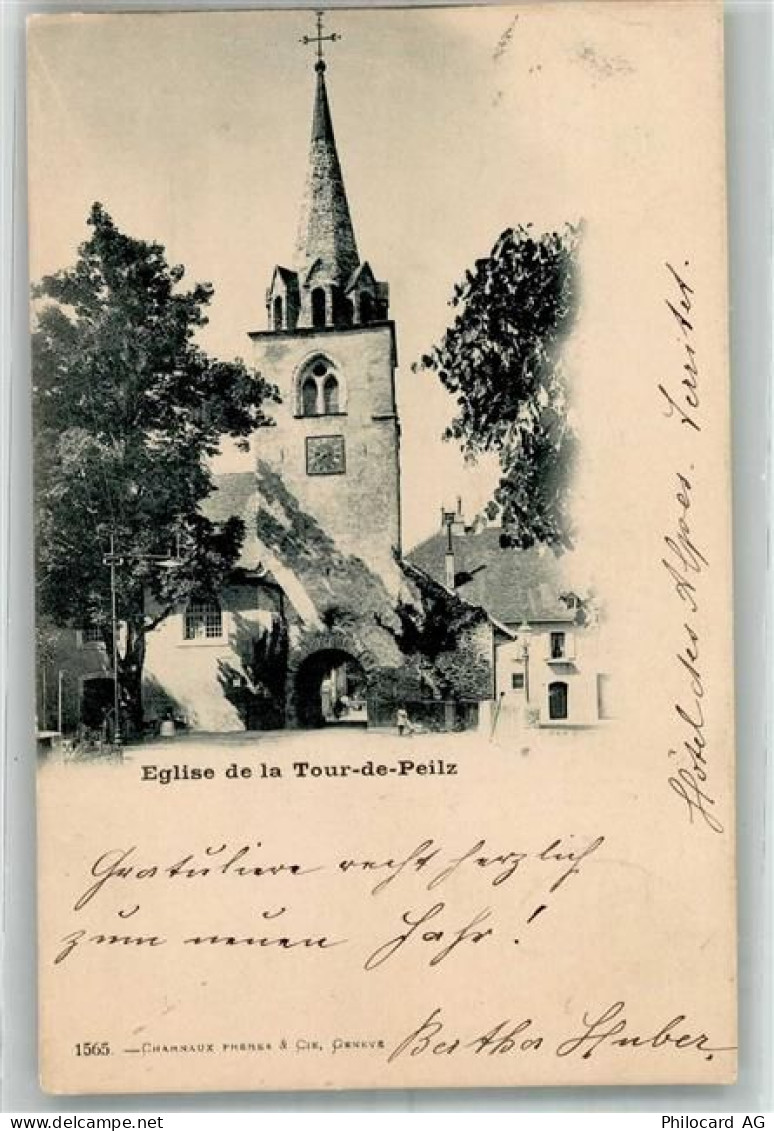 Eglise de la Tour-de-Peilz
Gratuliere recht herzlich
zum neuen Jahr!
Bertha Huber
1565. — CHARNAUX FRÈRES & CIE, GENÈVE
Hôtel des Alpes. Territet.
Philocard AG